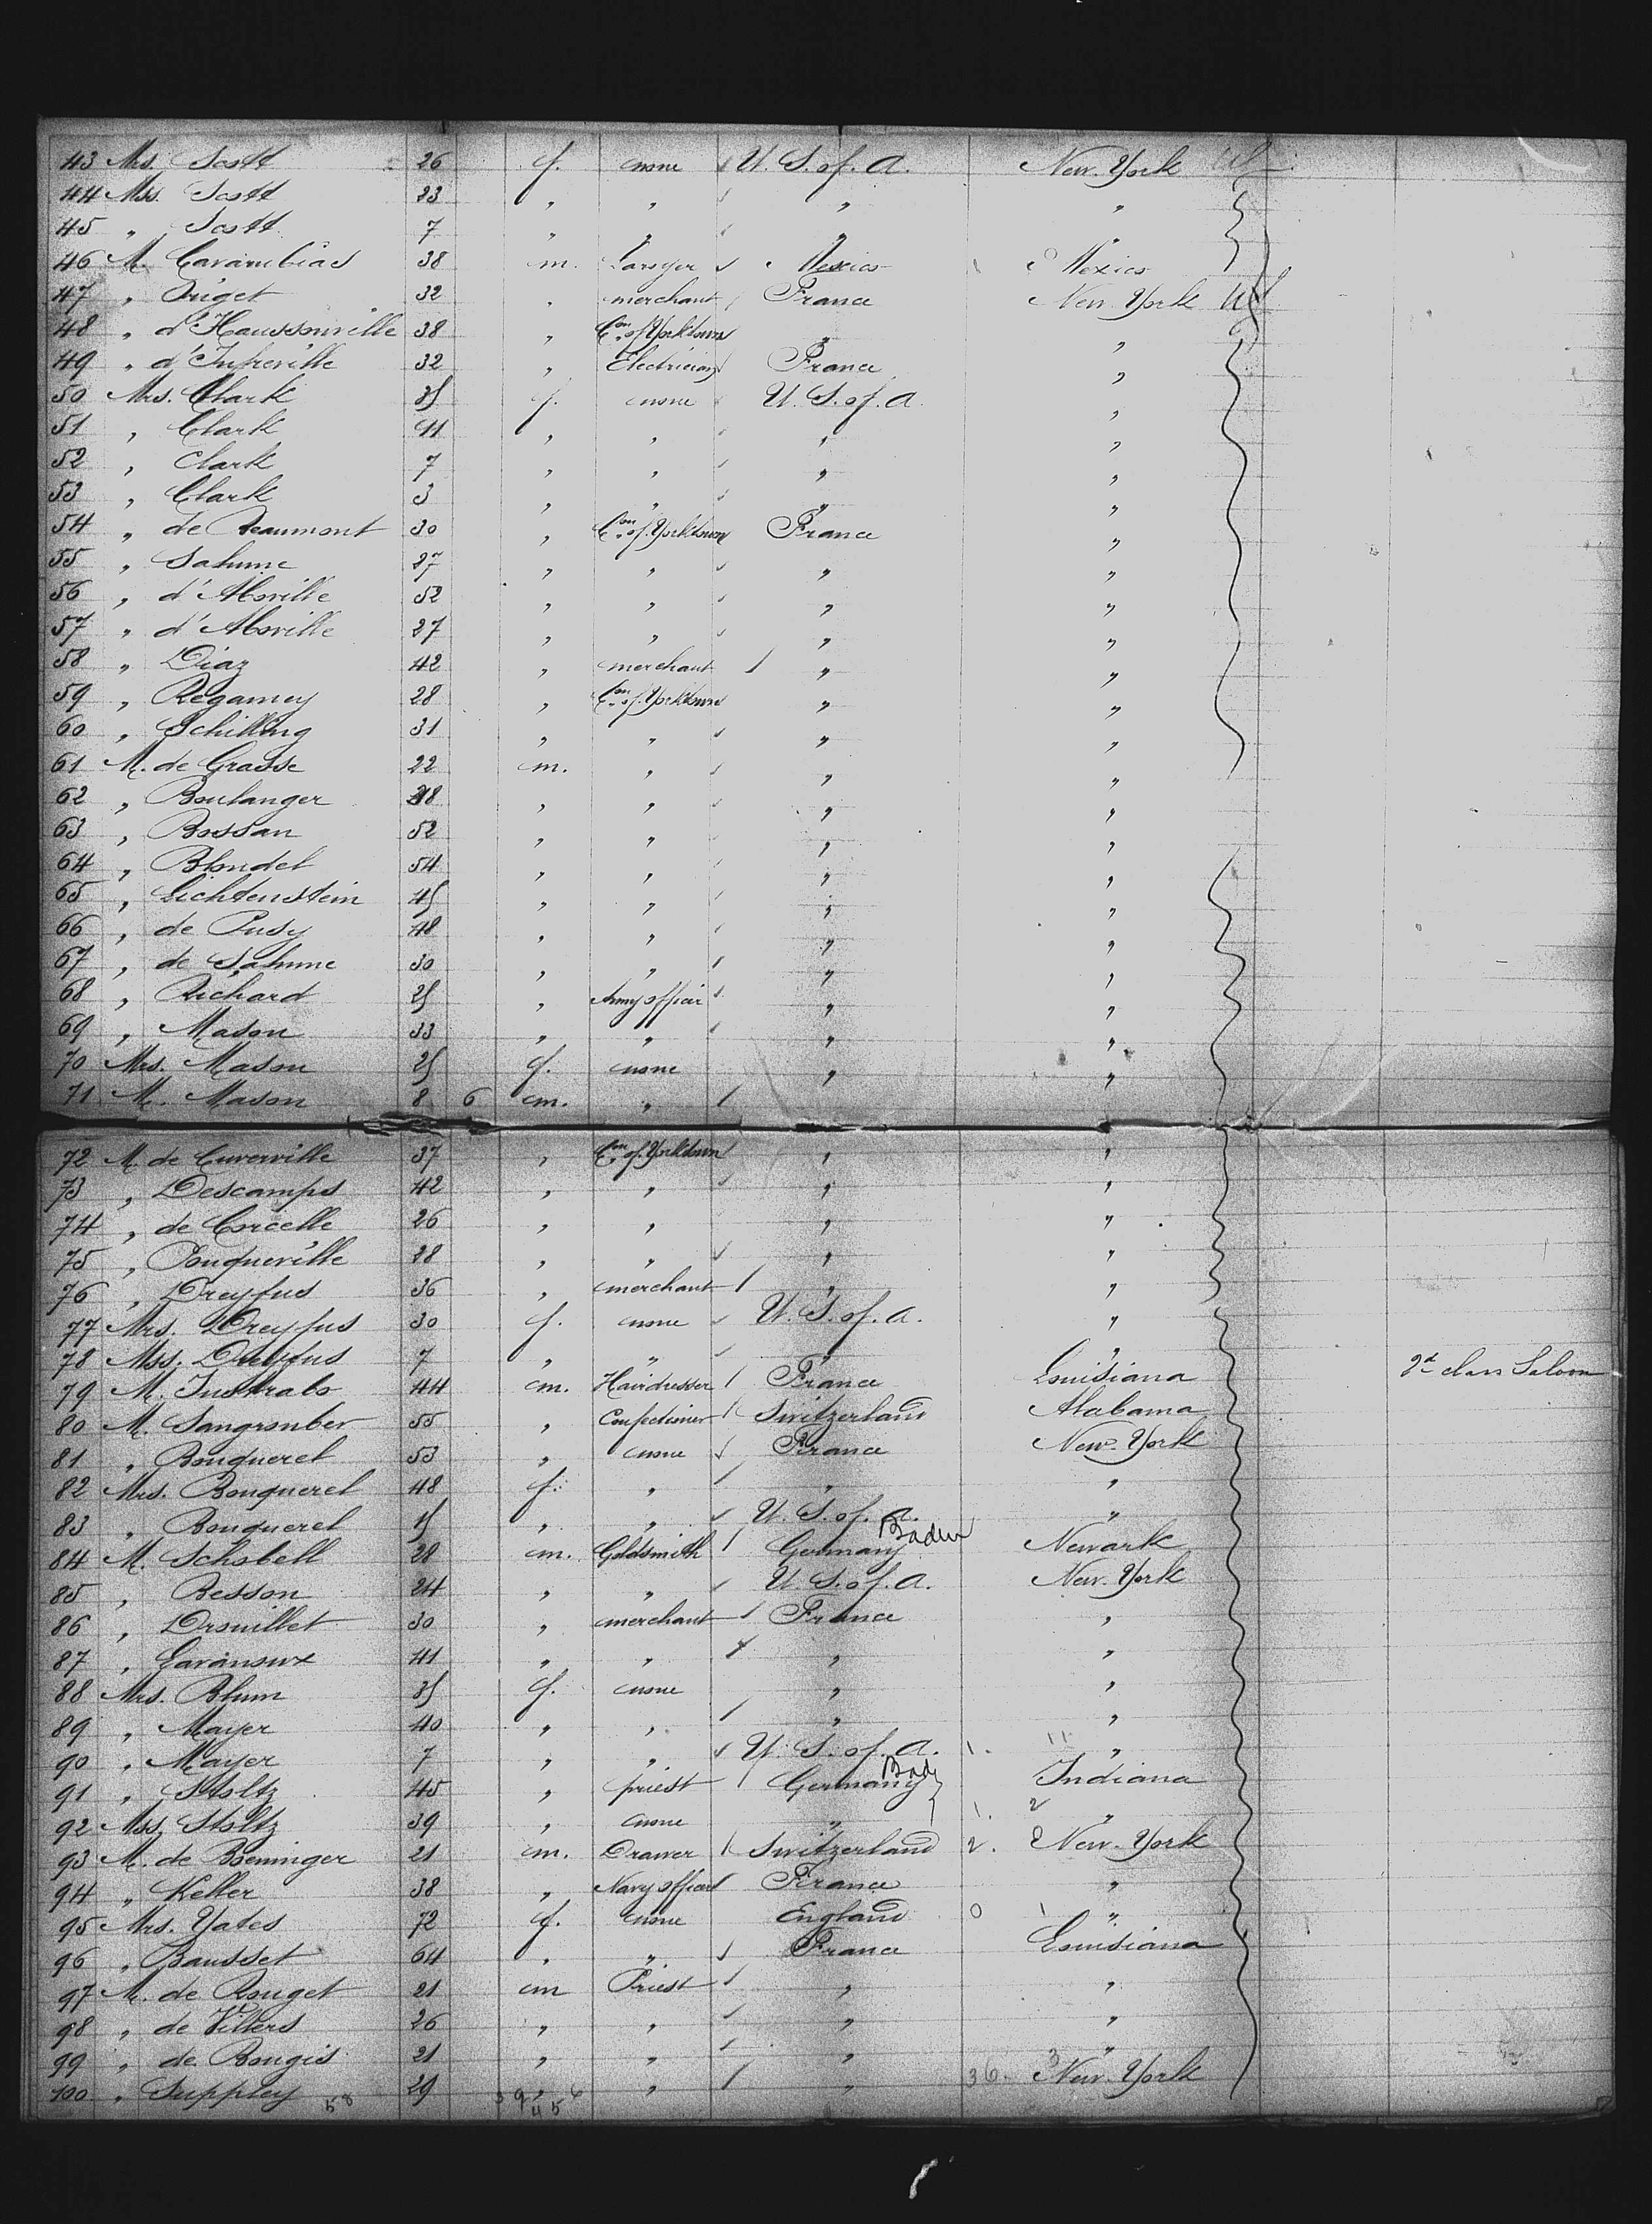 43 Mrs. Scott 26 f. none U. S. of. A. New. York
44 Mss. Scott 23 " " " "
45 " Scott 7 " " " "
46 M. Cavarubias 38 m. Lawyer Mexico Mexico
47 " Puget 32 " merchant France New York
48 " d'Haussonville 38 " Con. of. Yorktown " "
49 " d'Infreville 32 " Electrician France "
50 Mrs. Clark 35 f. none U. S. of. A "
51 " Clark 11 " " " "
52 " Clark 7 " " " "
53 " Clark 3 " " " "
54 " de Beaumont 30 " Con. of. Yorktown France "
55 " Sahune 27 " " " "
56 " d'Aboville 52 " " " "
57 " d'Aboville 27 " " " "
58 " Diaz 42 " merchant " "
59 " Regamey 28 " Con. of. Yorktown " "
60 " Schilling 31 " " " "
61 M. de Grasse 22 m. " " "
62 " Boulanger 48 " " " "
63 " Bossan 52 " " " "
64 " Blondel 54 " " " "
65 " Lichtenstein 45 " " " "
66 " de Pusy 48 " " " "
67 " de Sahune 30 " " " "
68 " Richard 25 " Army officer " "
69 " Mason 33 " " " "
70 Mrs. Mason 25 f. none " "
71 M. Mason 8 6 m. "
72 M. de Cuverville 37 " Con. of. Yorktown " "
73 " Descamps 42 " " " "
74 " de Corcelle 26 " " " "
75 " Pouqueville 28 " " " "
76 " Dreyfus 36 " merchant " "
77 Mrs. Dreyfus 30 f. none U. S. of. A. "
78 Mss. Dreyfus 7 " " " "
79 M. Instrabo 44 m. Hairdresser France Louisiana 2d class Saloon
80 M. Sangrouber 55 " Confectioner Switzerland Alabama
81 " Bouquerel 53 " none France New. York
82 Mrs. Bouquerel 48 f. " " "
83 " Bouquerel 15 " " U. S. of. A. "
84 M. Schobell 28 m. Goldsmith Germany Baden Newark
85 " Besson 24 " " U. S. of. A. New. York
86 " Drouillet 30 " merchant France "
87 " Garanoux 41 " " " "
88 Mrs. Blum 35 f. none " "
89 " Mayer 40 " " " "
90 " Mayer 7 " " U. S. of. A. 1. 11 "
91 " Stoltz 45 " priest Germany Bad Indiana
92 Mss. Stoltz 39 " none " 1. 2 "
93 M. de Boeninger 21 m. Drawer Switzerland 2. 2 New. York
94 " Keller 38 " Navy officer France "
95 Mrs. Yates 72 f. none England 0 1 "
96 " Bausset 64 " " France Louisiana
97 M. de Rouget 21 m Priest " "
98 " de Villers 26 " " " "
99 " de Bougis 21 " " " 3 "
100 " Suppley 29 " " " 36. New. York
58 39 6 45